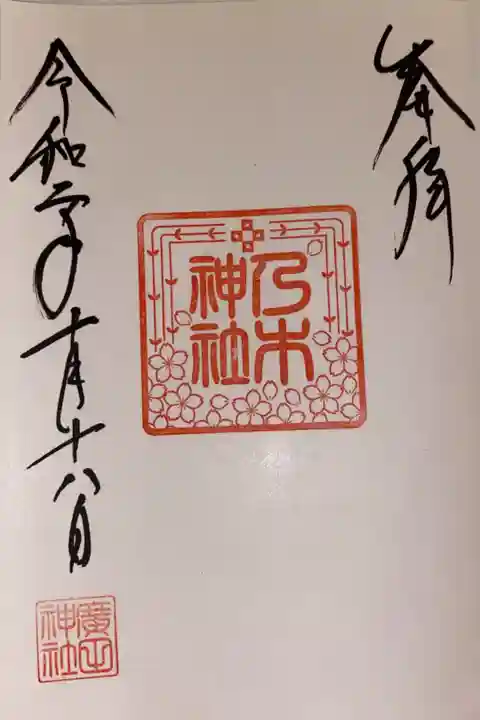 奉拝
乃木
神社
令和二年十月十八日
廣田
神社